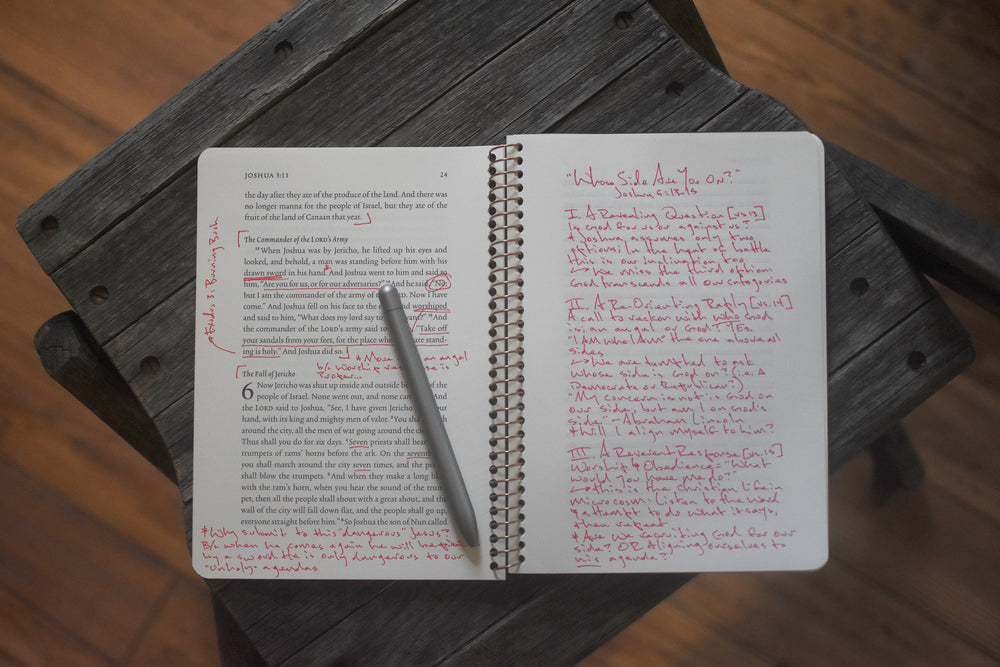 JOSHUA 5:13 24
the day after they ate of the produce of the land. And there was
no longer manna for the people of Israel, but they ate of the
fruit of the land of Canaan that year.
The Commander of the LORD's Army
13 When Joshua was by Jericho, he lifted up his eyes and
looked, and behold, a man was standing before him with his
drawn sword in his hand. And Joshua went to him and said to
him, "Are you for us, or for our adversaries?" 14 And he said, "No;
but I am the commander of the army of the Now I have
come." And Joshua fell on his face to the and worshiped
and said to him, "What does my lord say to 15 And
the commander of the LORD's army said to "Take off
your sandals from your feet, for the place wh are stand-
ing is holy." And Joshua did so.
*More an angel
b/c worship is
proper...
Exodus 3: Burning Bush
The Fall of Jericho
6 Now Jericho was shut up inside and outside of the
people of Israel. None went out, and none 2 And
the LORD said to Joshua, "See, I have given Jericho your
hand, with its king and mighty men of valor. 3 You
around the city, all the men of war going around the
Thus shall you do for six days. 4 Seven priests shall
trumpets of rams' horns before the ark. On the
you shall march around the city seven times, and the
shall blow the trumpets. 5 And when they make a long
with the ram's horn, when you hear the sound of the
pet, then all the people shall shout with a great shout, and the
wall of the city will fall down flat, and the people shall go up,
everyone straight before him." 6 So Joshua the son of Nun called
*Why submit to this "dangerous" Jesus?
B/c when he comes again he will be
by a sword. He is only dangerous to our
"unholy" agendas
"Whose Side Are You On?"
Joshua 5:13-15
I. A Revealing Question [vs. 13]
Is God for us or against us?
*Joshua assumes only two
options; in the heat of battle
this is our inclination too
↳ We miss the third option:
God transcends all our categories
II. A Re-Orienting Reply [vs. 14]
A call to reckon with who God
is: an angel or God? YES.
"I AM who I AM" the one above all
sides
↳ We are tempted to ask
whose side is God on? (i.e. A
Democrat or Republican?)
"My concern is not is God on
our side, but am I on God's
side." - Abraham Lincoln
*Will I align myself to him?
III. A Reverent Response [vs. 15]
Worship & Obedience = "What
would you have me do?"
↳ this is the Christian life in
microcosm: listen to the Word
& attempt to do what it says,
then repeat
* Are we recruiting God for our
side? OR Aligning ourselves to
his agenda?